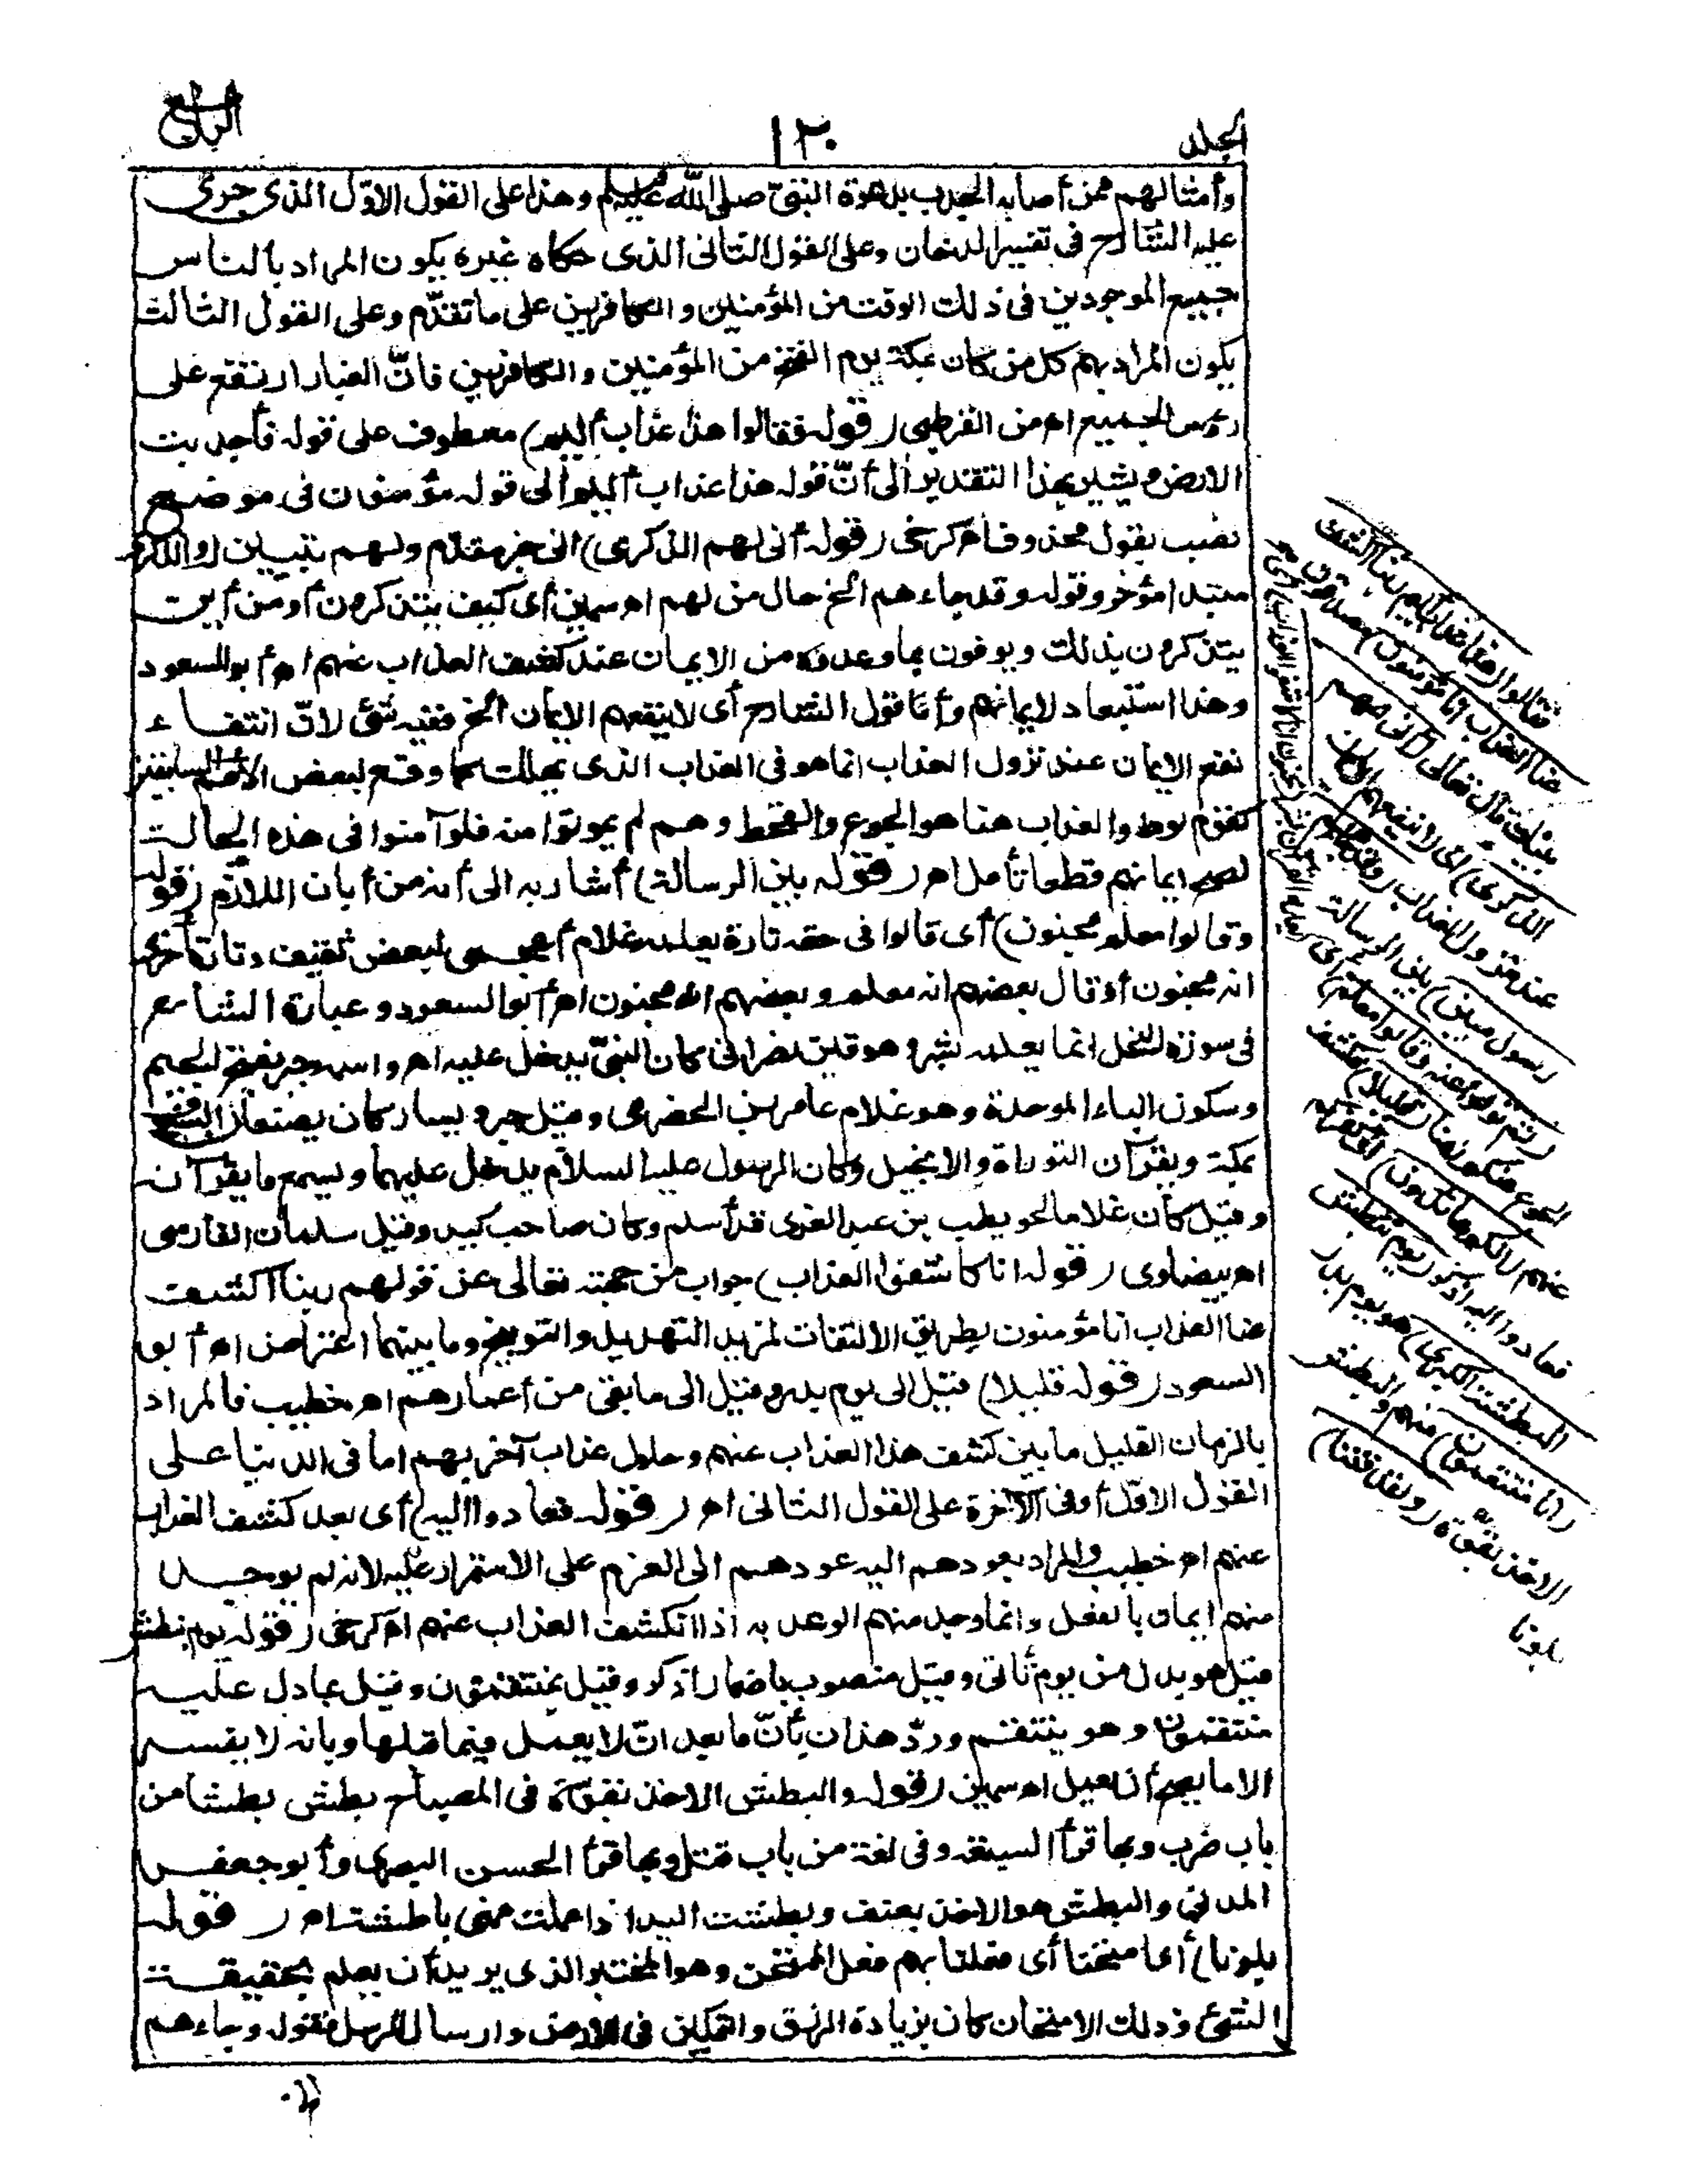 الجلد
١٢٠
الرابع
وأمثالهم ممن أصابه الجدب بدعوة النبيّ صلى الله عليه وسلم وهذا على القول الاوّل الذى جرى
عليه الشارح فى تفسير الدخان وعلى القول الثانى الذى حكاه غيره يكون المراد بالناس
جميع الموجودين فى ذلك الوقت من المؤمنين والكافرين على ما تقدّم وعلى القول الثالث
يكون المراد بهم كل من كان بمكة يوم الفتح من المؤمنين والكافرين فانّ الغبار ارتفع على
رؤس الجميع اه من القرطبى (قوله فقالوا هذا عذاب أليم) معطوف على قوله فأجدبت
الارض ويشير بهذا التقدير الى أنّ قوله هذا عذاب أليم الى قوله مؤمنون فى موضع
نصب بقول محذوف اه كرخى (قوله أنى لهم الذكرى) انى خبر مقدّم ولهم تبيين (والذكرى
مبتدا مؤخر وقوله وقد جاءهم الخ حال من لهم اه سمين أى كيف يتذكرون أو من أين
يتذكرون بذلك ويوفون بما وعدوه من الايمان عند كشف العذاب عنهم اه أبو السعود
وهذا استبعاد لايمانهم وأمّا قول الشارح أى لاينفعهم الايمان الخ ففيه شئ لانّ انتفاء
نفع الايمان عند نزول العذاب انما هو فى العذاب الذى يهلك كما وقع لبعض الأمم السابقين
كقوم لوط والعذاب هنا هو الجوع والقحط وهم لم يموتوا منه فلو آمنوا فى هذه الحالة
لصح ايمانهم قطعا تأمل اه (قوله بين الرسالة) أشار به الى أنه من أبان اللازم (قوله
وقالوا معلم مجنون) أى قالوا فى حقه تارة يعلمه غلام أعجمى لبعض ثقيف وتارة أخرى
انه مجنون أو قال بعضهم انه معلم وبعضهم انه مجنون اه أبو السعود وعبارة الشارح
فى سورة النحل انما يعلمه بشر وهو قين نصرانى كان النبيّ يدخل عليه اه واسمه جبر بفتح الجيم
وسكون الباء الموحدة وهو غلام عامر بن الحضرمى وقيل جبر ويسار كان يصنعان السيف
بمكة ويقرآن التوراة والانجيل وكان الرسول عليه السلام يدخل عليهما ويسمع ما يقرآنه
وقيل كان غلاما لحويطب بن عبد العزى قد أسلم وكان صاحب كتب وقيل سلمان الفارسى
اه بيضاوى (قوله انا كاشفوا العذاب) جواب من جهته تعالى عن قولهم ربنا اكشف
عنا العذاب انا مؤمنون بطريق الالتفات لمزيد التهديد والتوبيخ وما بينهما اعتراض اه أبو
السعود (قوله قليلا) قيل الى يوم بدر وقيل الى ما بقى من أعمارهم اه خطيب فالمراد
بالزمان القليل ما بين كشف هذا العذاب عنهم وحلول عذاب آخر بهم اما فى الدنيا على
القول الاوّل أو فى الآخرة على القول الثانى اه (قوله فعادوا اليه) أى بعد كشف العذاب
عنهم اه خطيب والمراد بعودهم اليه عودهم الى العزم على الاستمرار عليه لانه لم يوجد
منهم ايمان بالفعل وانما وجد منهم الوعد به اذا انكشف العذاب عنهم اه كرخى (قوله يوم نبطش
قيل هو بدل من يوم تأتى وقيل منصوب باضمار اذكر وقيل بمنتقمون وقيل بمادل عليه
منتقمون وهو ينتقم وردّ هذان بأنّ ما بعد انّ لا يعمل فيما قبلها وبانه لا يفسر
الا ما يصح أن يعمل اه سمين (قوله والبطش الاخذ بقوّة) فى المصباح بطش بطشا من
باب ضرب وبها قرأ السبعة وفى لغة من باب قتل وبها قرأ الحسن البصرى وأبو جعفر
المدنى والبطش هو الاخذ بعنف وبطشت اليد اذا عملت فهى باطشة اه (قوله
بلونا) أى امتحنا أى فعلنا بهم فعل الممتحن وهو المختبر الذى يريد أن يعلم بحقيقة
الشئ وذلك الامتحان كان بزيادة الرزق والتمكين فى الارض وارسال الرسل فقوله وجاءهم
فقالوا (هذا عذاب أليم ربنا اكشف
عنا العذاب انا مؤمنون) مصدقون
بنبيك قال تعالى (أنى لهم
الذكرى) أى لا ينفعهم الايمان
عند نزول العذاب (وقد جاءهم
رسول مبين) بين الرسالة
(ثم تولوا عنه وقالوا معلم) أى
يعلمه القرآن بشر (مجنون انا كاشفوا العذاب) أى
الجوع عنكم زمنا (قليلا) فكشف
عنهم (انكم عائدون) الى كفركم
فعادوا اليه اذكر (يوم نبطش
البطشة الكبرى) هو يوم بدر
(انا منتقمون) منهم والبطش
الاخذ بقوّة (ولقد فتنا)
بلونا